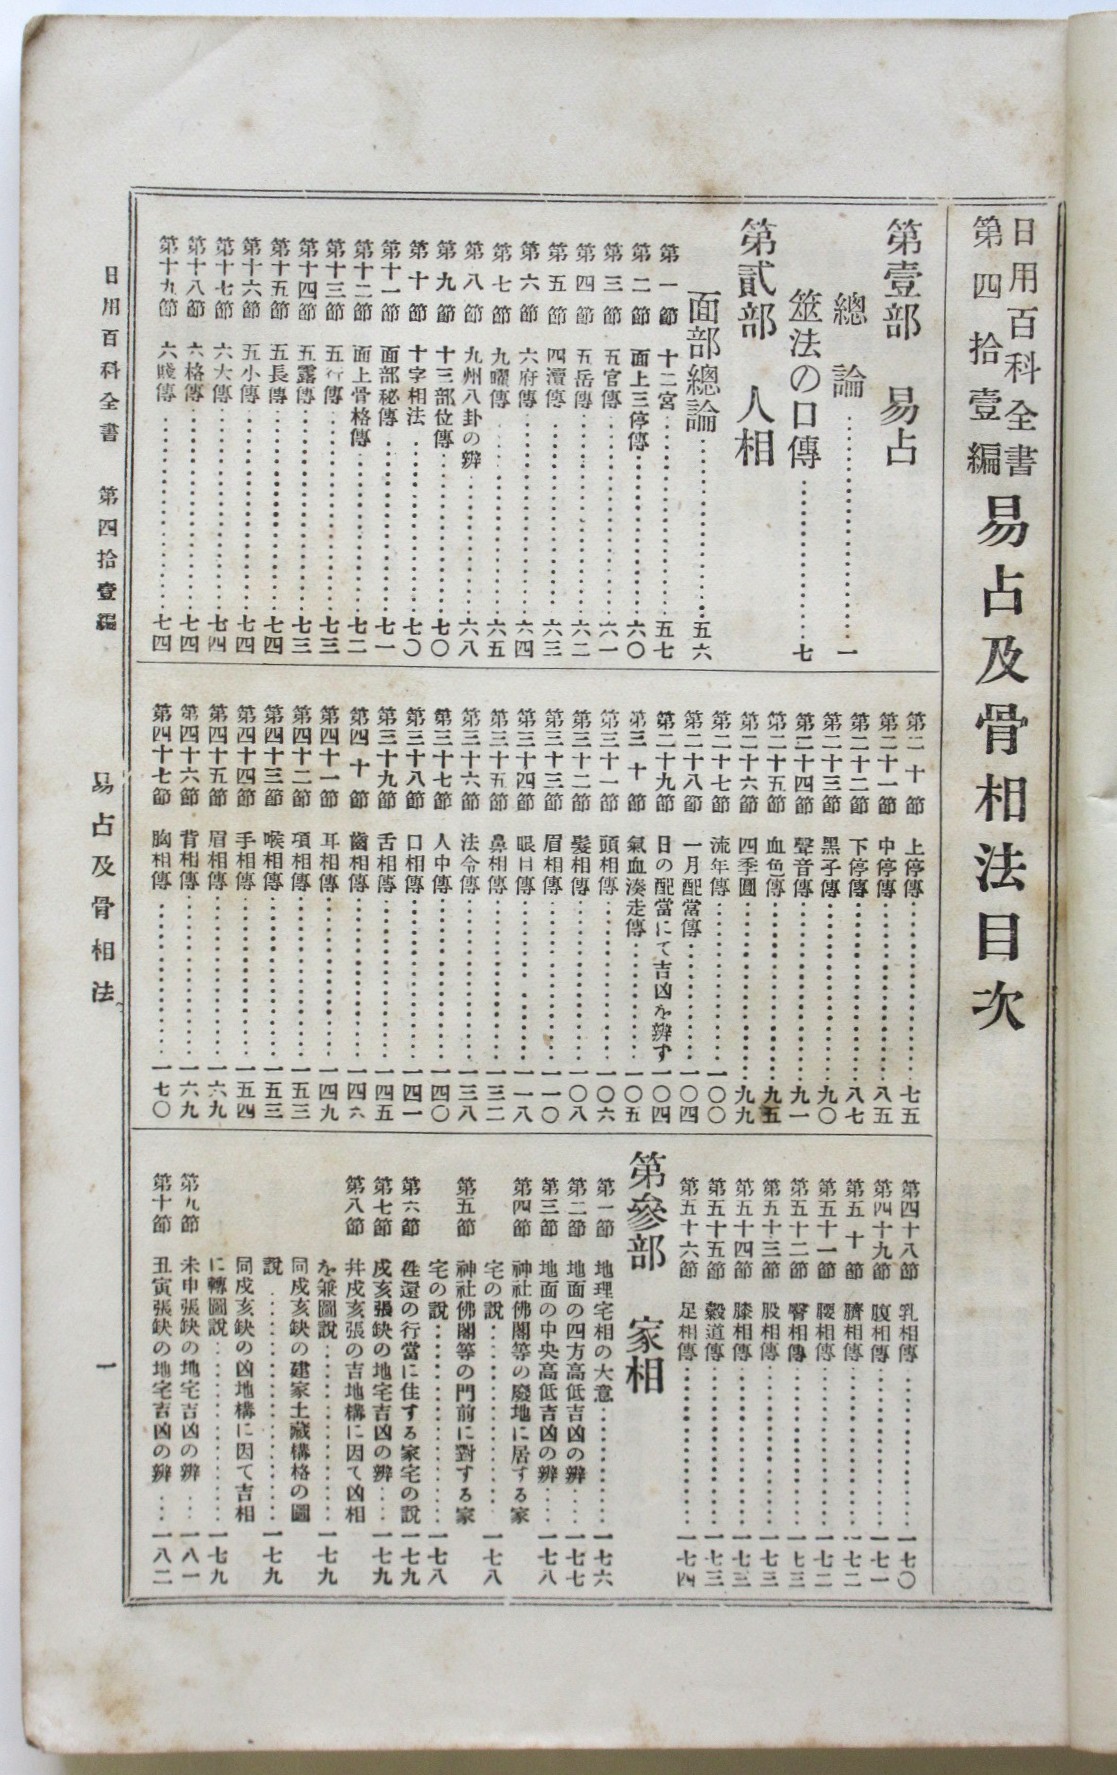 日用百科全書
第四拾壹編
易占及骨相法目次
第壹部 易占
總論……一
筮法の口傳……七
第貳部 人相
面部總論……五六
第一節 十二宮……五七
第二節 面上三停傳……六〇
第三節 五官傳……六一
第四節 五岳傳……六二
第五節 四瀆傳……六三
第六節 六府傳……六四
第七節 九曜傳……六五
第八節 九州八卦の辨……六八
第九節 十三部位傳……七〇
第十節 十字相法……七〇
第十一節 面部秘傳……七一
第十二節 面上骨格傳……七二
第十三節 五行傳……七三
第十四節 五露傳……七三
第十五節 五長傳……七四
第十六節 五小傳……七四
第十七節 六大傳……七四
第十八節 六格傳……七四
第十九節 六賤傳……七四
第二十節 上停傳……七五
第二十一節 中停傳……八五
第二十二節 下停傳……八七
第二十三節 黑子傳……九〇
第二十四節 聲音傳……九一
第二十五節 血色傳……九五
第二十六節 四季圖……九九
第二十七節 流年傳……一〇〇
第二十八節 一月配當傳……一〇四
第二十九節 日の配當にて吉凶を辨ず 一〇四
第三十節 氣血湊走傳……一〇五
第三十一節 頭相傳……一〇六
第三十二節 髮相傳……一〇八
第三十三節 眉相傳……一一〇
第三十四節 眼目傳……一一八
第三十五節 鼻相傳……一三二
第三十六節 法令傳……一三八
第三十七節 人中傳……一四〇
第三十八節 口相傳……一四一
第三十九節 舌相傳……一四五
第四十節 齒相傳……一四六
第四十一節 耳相傳……一四九
第四十二節 項相傳……一五三
第四十三節 喉相傳……一五三
第四十四節 手相傳……一五四
第四十五節 眉相傳……一六九
第四十六節 背相傳……一六九
第四十七節 胸相傳……一七〇
第四十八節 乳相傳……一七〇
第四十九節 腹相傳……一七一
第五十節 臍相傳……一七二
第五十一節 腰相傳……一七二
第五十二節 臀相傳……一七三
第五十三節 股相傳……一七三
第五十四節 膝相傳……一七三
第五十五節 穀道傳……一七三
第五十六節 足相傳……一七四
第參部 家相
第一節 地理宅相の大意……一七六
第二節 地面の四方高低吉凶の辨……一七七
第三節 地面の中央高低吉凶の辨……一七八
第四節 神社佛閣等の廢地に居する家
宅の說……一七八
第五節 神社佛閣等の門前に對する家
宅の說……一七八
第六節 徃還の行當に住する家宅の說 一七九
第七節 戌亥張缺の地宅吉凶の辨……一七九
第八節 幷戌亥張の吉地構に因て凶相
を兼圖說……一七九
同戌亥缺の建家土藏構格の圖
說……一七九
同戌亥缺の凶地構に因て吉相
に轉圖說……一七九
第九節 未申張缺の地宅吉凶の辨……一八一
第十節 丑寅張缺の地宅吉凶の辨……一八二
日用百科全書 第四拾壹編 易占及骨相法 一